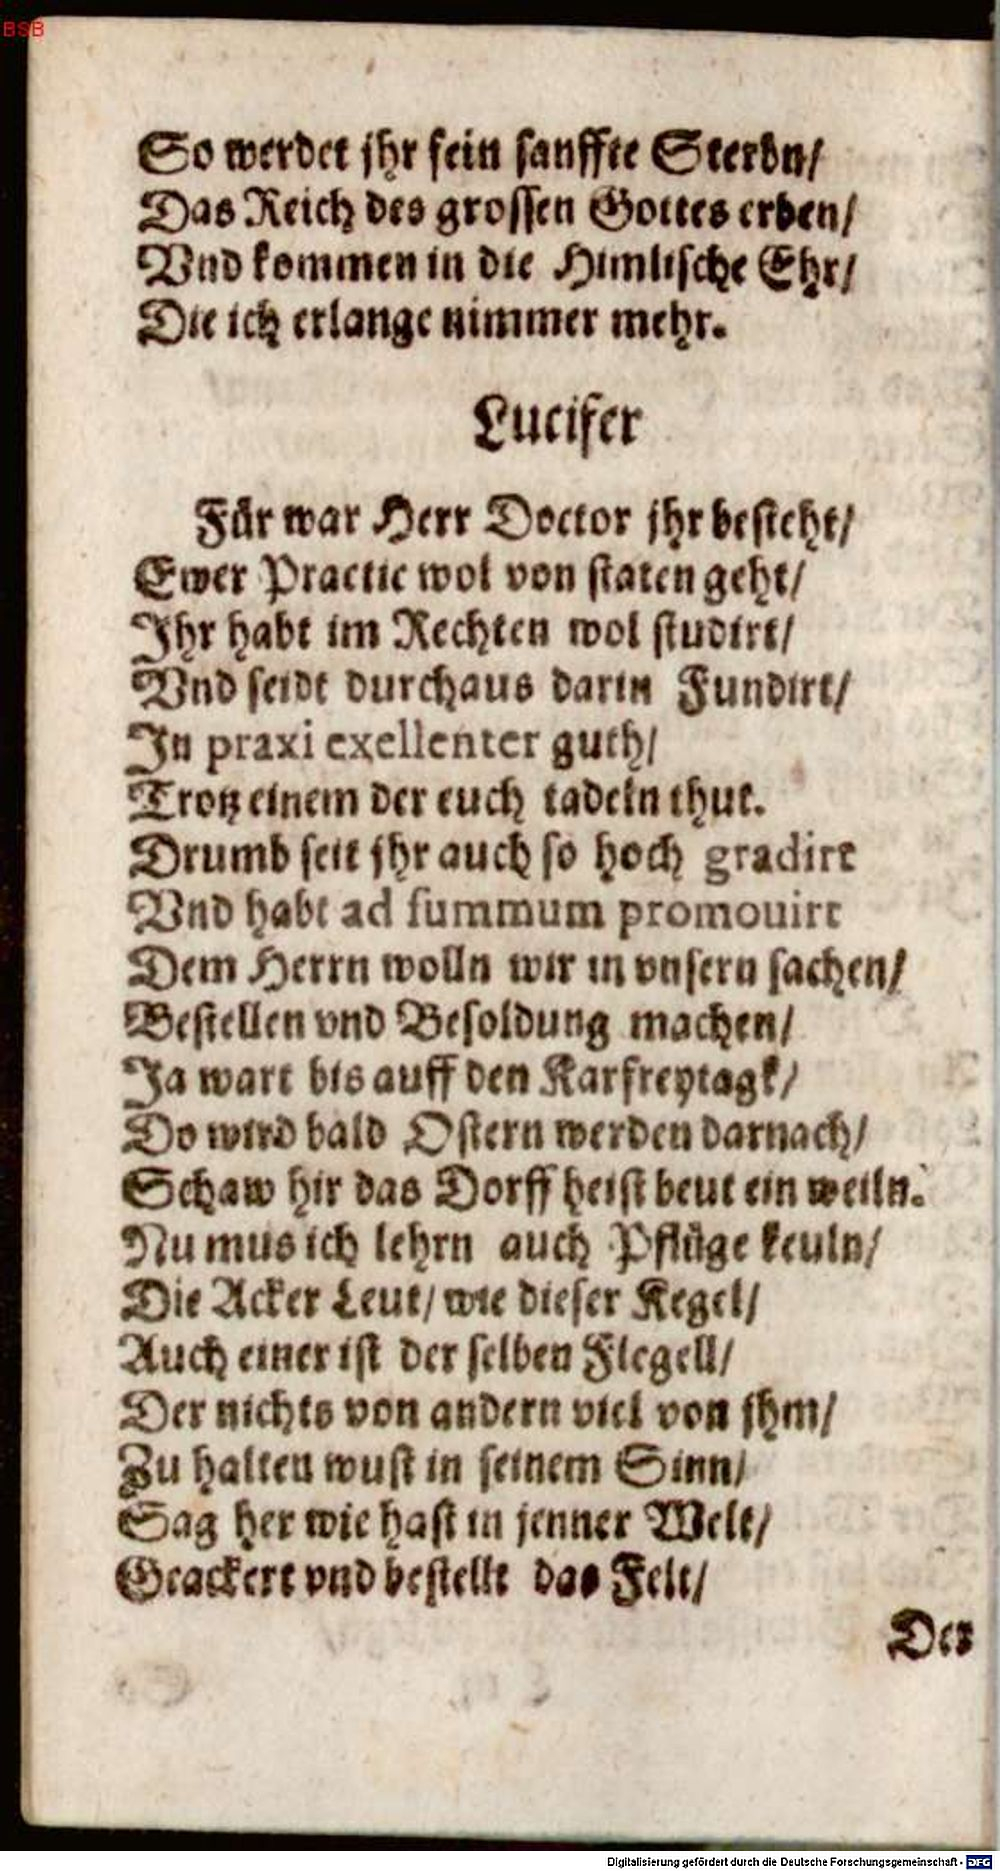 BSB
So werdet jhr fein sanffte Sterbn/
Das Reich des grossen Gottes erben/
Vnd kommen in die Himlische Ehr/
Die ich erlange nimmer mehr.
Lucifer
Für war Herr Doctor jhr besteht/
Ewer Practic wol von staten geht/
Jhr habt im Rechten wol studirt/
Vnd seidt durchaus darin Fundirt/
Jn praxi exellenter guth/
Trotz einem der euch tadeln thut.
Drumb seit jhr auch so hoch gradirt
Vnd habt ad summum promouirt
Dem Herrn wolln wir in vnsern sachen/
Bestellen vnd Besoldung machen/
Ja wart bis auff den Karfreytagk/
Do wird bald Ostern werden darnach/
Schaw hir das Dorff heist beut ein weiln.
Nu mus ich lehrn auch Pflüge keuln/
Die Acker Leut/ wie dieser Kegel/
Auch einer ist der selben Flegell/
Der nichts von andern viel von jhm/
Zu halten wust in seinem Sinn/
Sag her wie hast in jenner Welt/
Geackert vnd bestellt das Felt/
Der
Digitalisierung gefördert durch die Deutsche Forschungsgemeinschaft - DFG